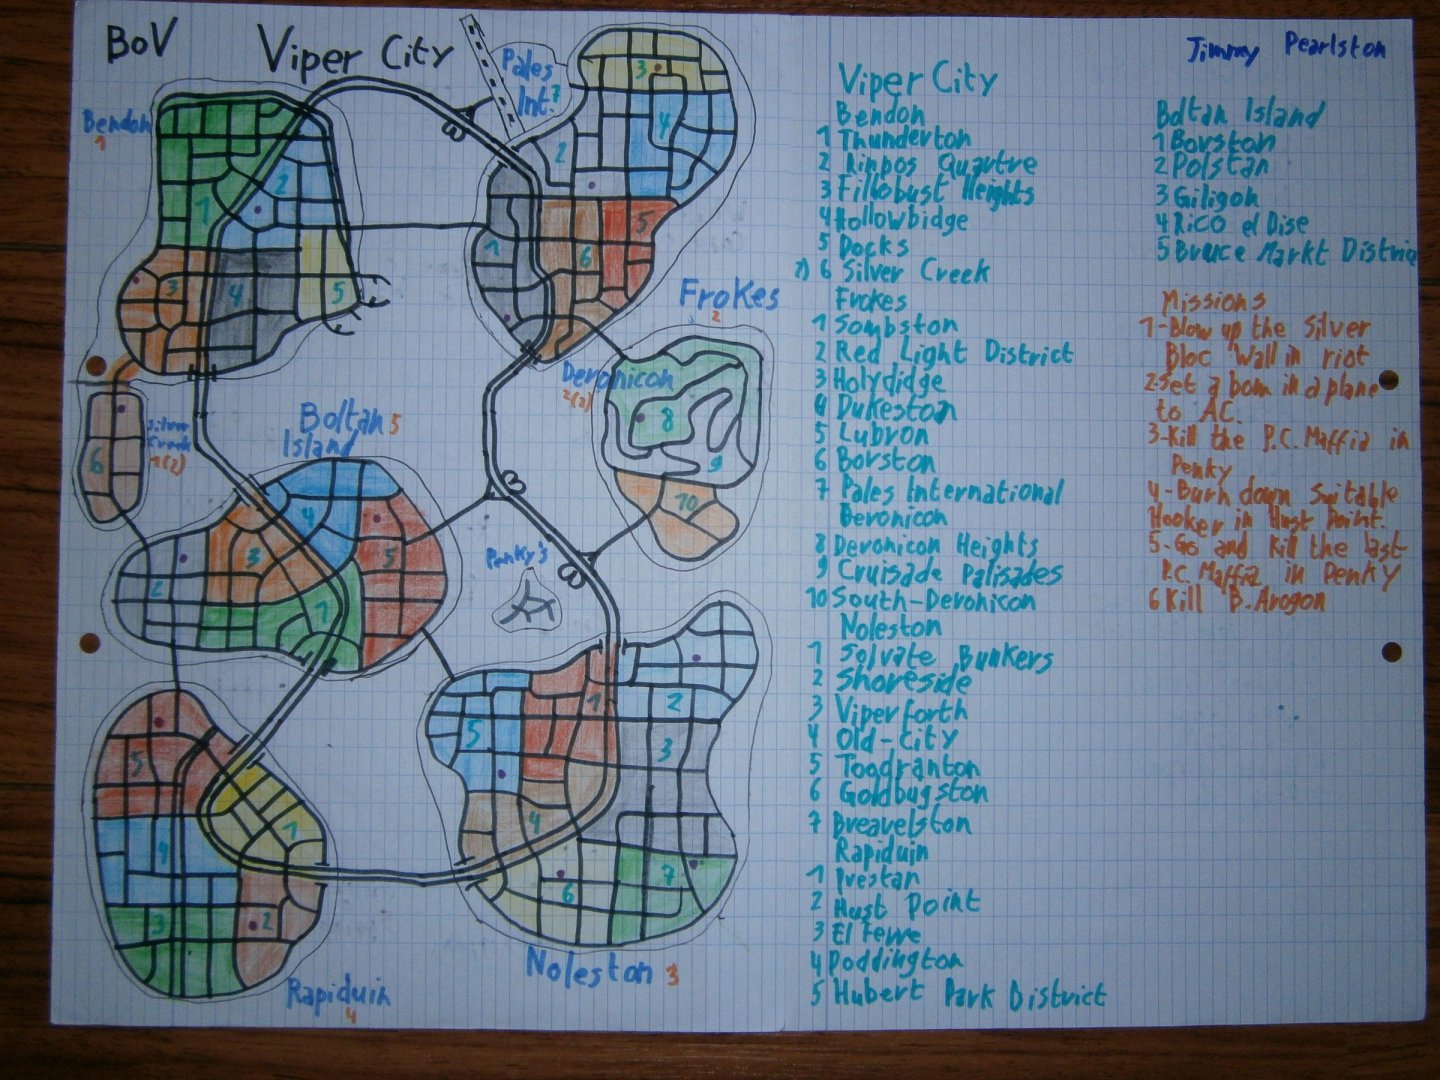 BoV
Viper City
Pales
Int. 7
Bendon
1
Frokes
2
Deronicon
2(2)
Boltan 5
Island
Silver
Creek
1(2)
Penky's
Noleston 3
Rapiduin
4
1
2
3
4
5
6
1
2
3
4
5
6
8
9
10
1
2
3
4
5
1
2
3
4
5
6
7
1
2
3
4
5
Jimmy Pearlston
Viper City
Bendon
1 Thunderton
2 Rinpos Quartre
3 Fillobust Heights
4 Hollowbidge
5 Docks
2) 6 Silver Creek
Frokes
1 Sombston
2 Red Light District
3 Holydidge
4 Dukeston
5 Lubron
6 Borston
7 Pales International
Deronicon
8 Deronicon Heights
9 Cruisade Palisades
10 South-Deronicon
Noleston
1 Solvate Bunkers
2 Shoreside
3 Viperforth
4 Old-City
5 Toodranton
6 Goldbugston
7 Breavelston
Rapiduin
1 Prestan
2 Hust Point
3 El Ferre
4 Poddington
5 Hubert Park District
Boltan Island
1 Borston
2 Polstan
3 Giligon
4 Rico el Dise
5 Bruce Markt District
Missions
1-Blow up the Silver
Bloc Wall in riot
2-Set a bom in a plane
to AC.
3-Kill the P.C. Maffia in
Penky
4-Burn down Suitable
Hooker in Hust Point.
5-Go and Kill the last
P.C. Maffia in Penky
6 Kill B. Arogon